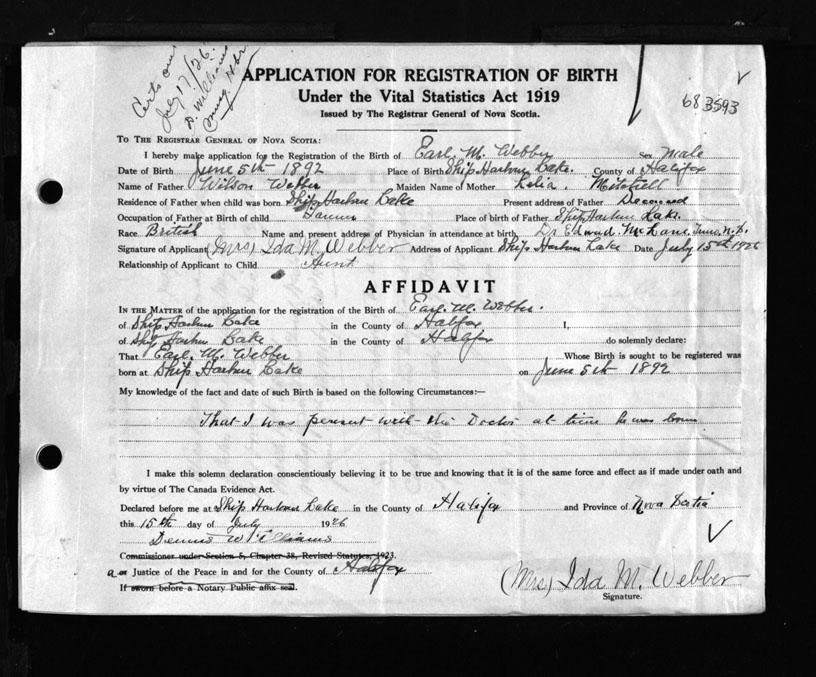 Certs
July 17/26
D. Williams
APPLICATION FOR REGISTRATION OF BIRTH
Under the Vital Statistics Act 1919
Issued by The Registrar General of Nova Scotia.
683593
TO THE REGISTRAR GENERAL OF NOVA SCOTIA:
I hereby make application for the Registration of the Birth of Earl. M. Webber Sex Male
Date of Birth June 5th 1892 Place of Birth Ship Harbour Lake. County of Halifax
Name of Father Wilson Webber Maiden Name of Mother Lelia. Mitchell
Residence of Father when child was born Ship Harbour Lake Present address of Father Deceased
Occupation of Father at Birth of child Place of birth of Father Ship Harbour Lake.
Race British Name and present address of Physician in attendance at birth, Dr Edward. McLane,
Signature of Applicant (Mrs) Ida M. Webber Address of Applicant Ship Harbour Lake Date July 15th 1926
Relationship of Applicant to Child Aunt
AFFIDAVIT
IN THE MATTER of the application for the registration of the Birth of Earl. M. Webber.
of Ship Harbour Lake in the County of Halfax I,
of Ship Harbour Lake in the County of Halfax do solemnly declare:
That Earl. M. Webber Whose Birth is sought to be registered was
born at Ship Harbour Lake on June 5th 1892
My knowledge of the fact and date of such Birth is based on the following Circumstances:—
That I was persent with the Doctor at time he was born
I make this solemn declaration conscientiously believing it to be true and knowing that it is of the same force and effect as if made under oath and
by virtue of The Canada Evidence Act.
Declared before me at Ship Harbour Lake in the County of Halifax and Province of Nova Scotia
this 15th day of July 1926
Dennis Williams
Commissioner under Section 5, Chapter 38, Revised Statutes, 1923.
a or Justice of the Peace in and for the County of Halifax
If sworn before a Notary Public affix seal.
(Mrs) Ida M. Webber
Signature.